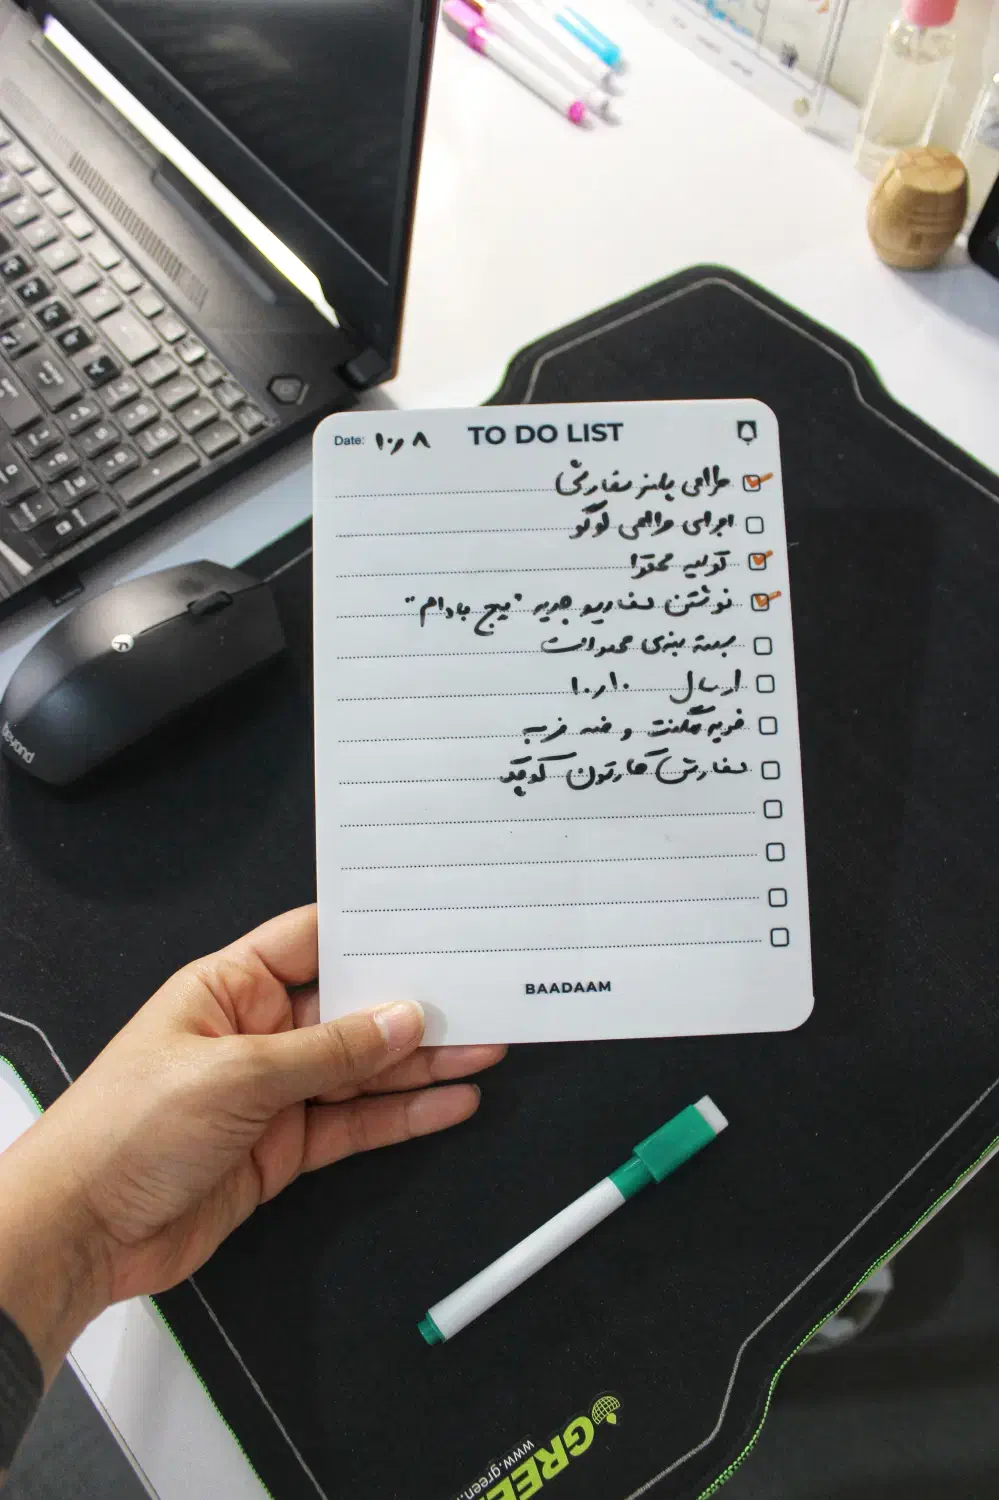 Date: ۱۰/۸
TO DO LIST
طراحی پلنر سفارشی
اجرای طراحی لوگو
تولید محتوا
نوشتن سناریو جدید "پیج بادام"
بسته بندی محصولات
ارسال ۱۰/۱۰
خرید مگنت و ضد ضربه
سفارش کارتون کوچک
BAADAAM
GREE
www.green.
Beyond